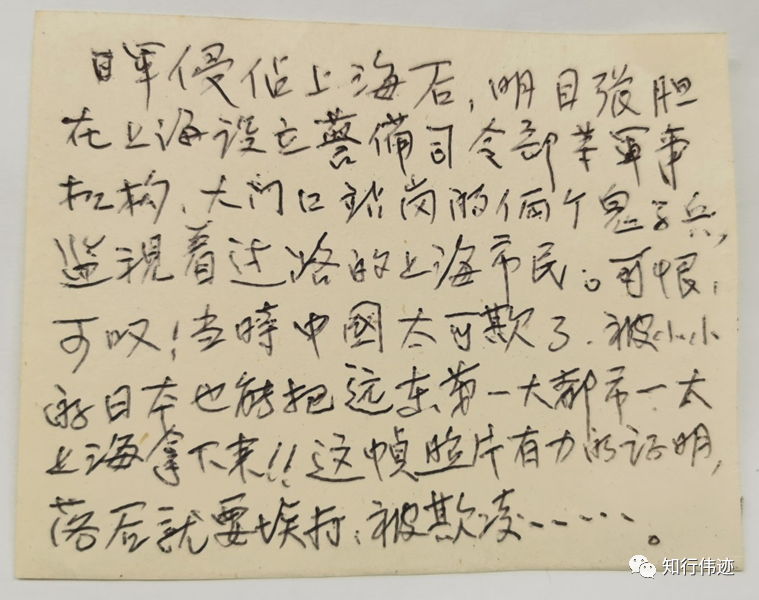 日軍侵佔上海后,明目張胆
在上海设立警備司令部等軍事
机构、大门口站岗的俩个鬼子兵,
监視着过路的上海市民。可恨,
可叹!当時中國太可欺了.被小小
的日本也能把远东第一大都市一大
上海拿下来!!这幀照片有力的证明,
落后就要埃打、被欺凌……。
知行伟迹